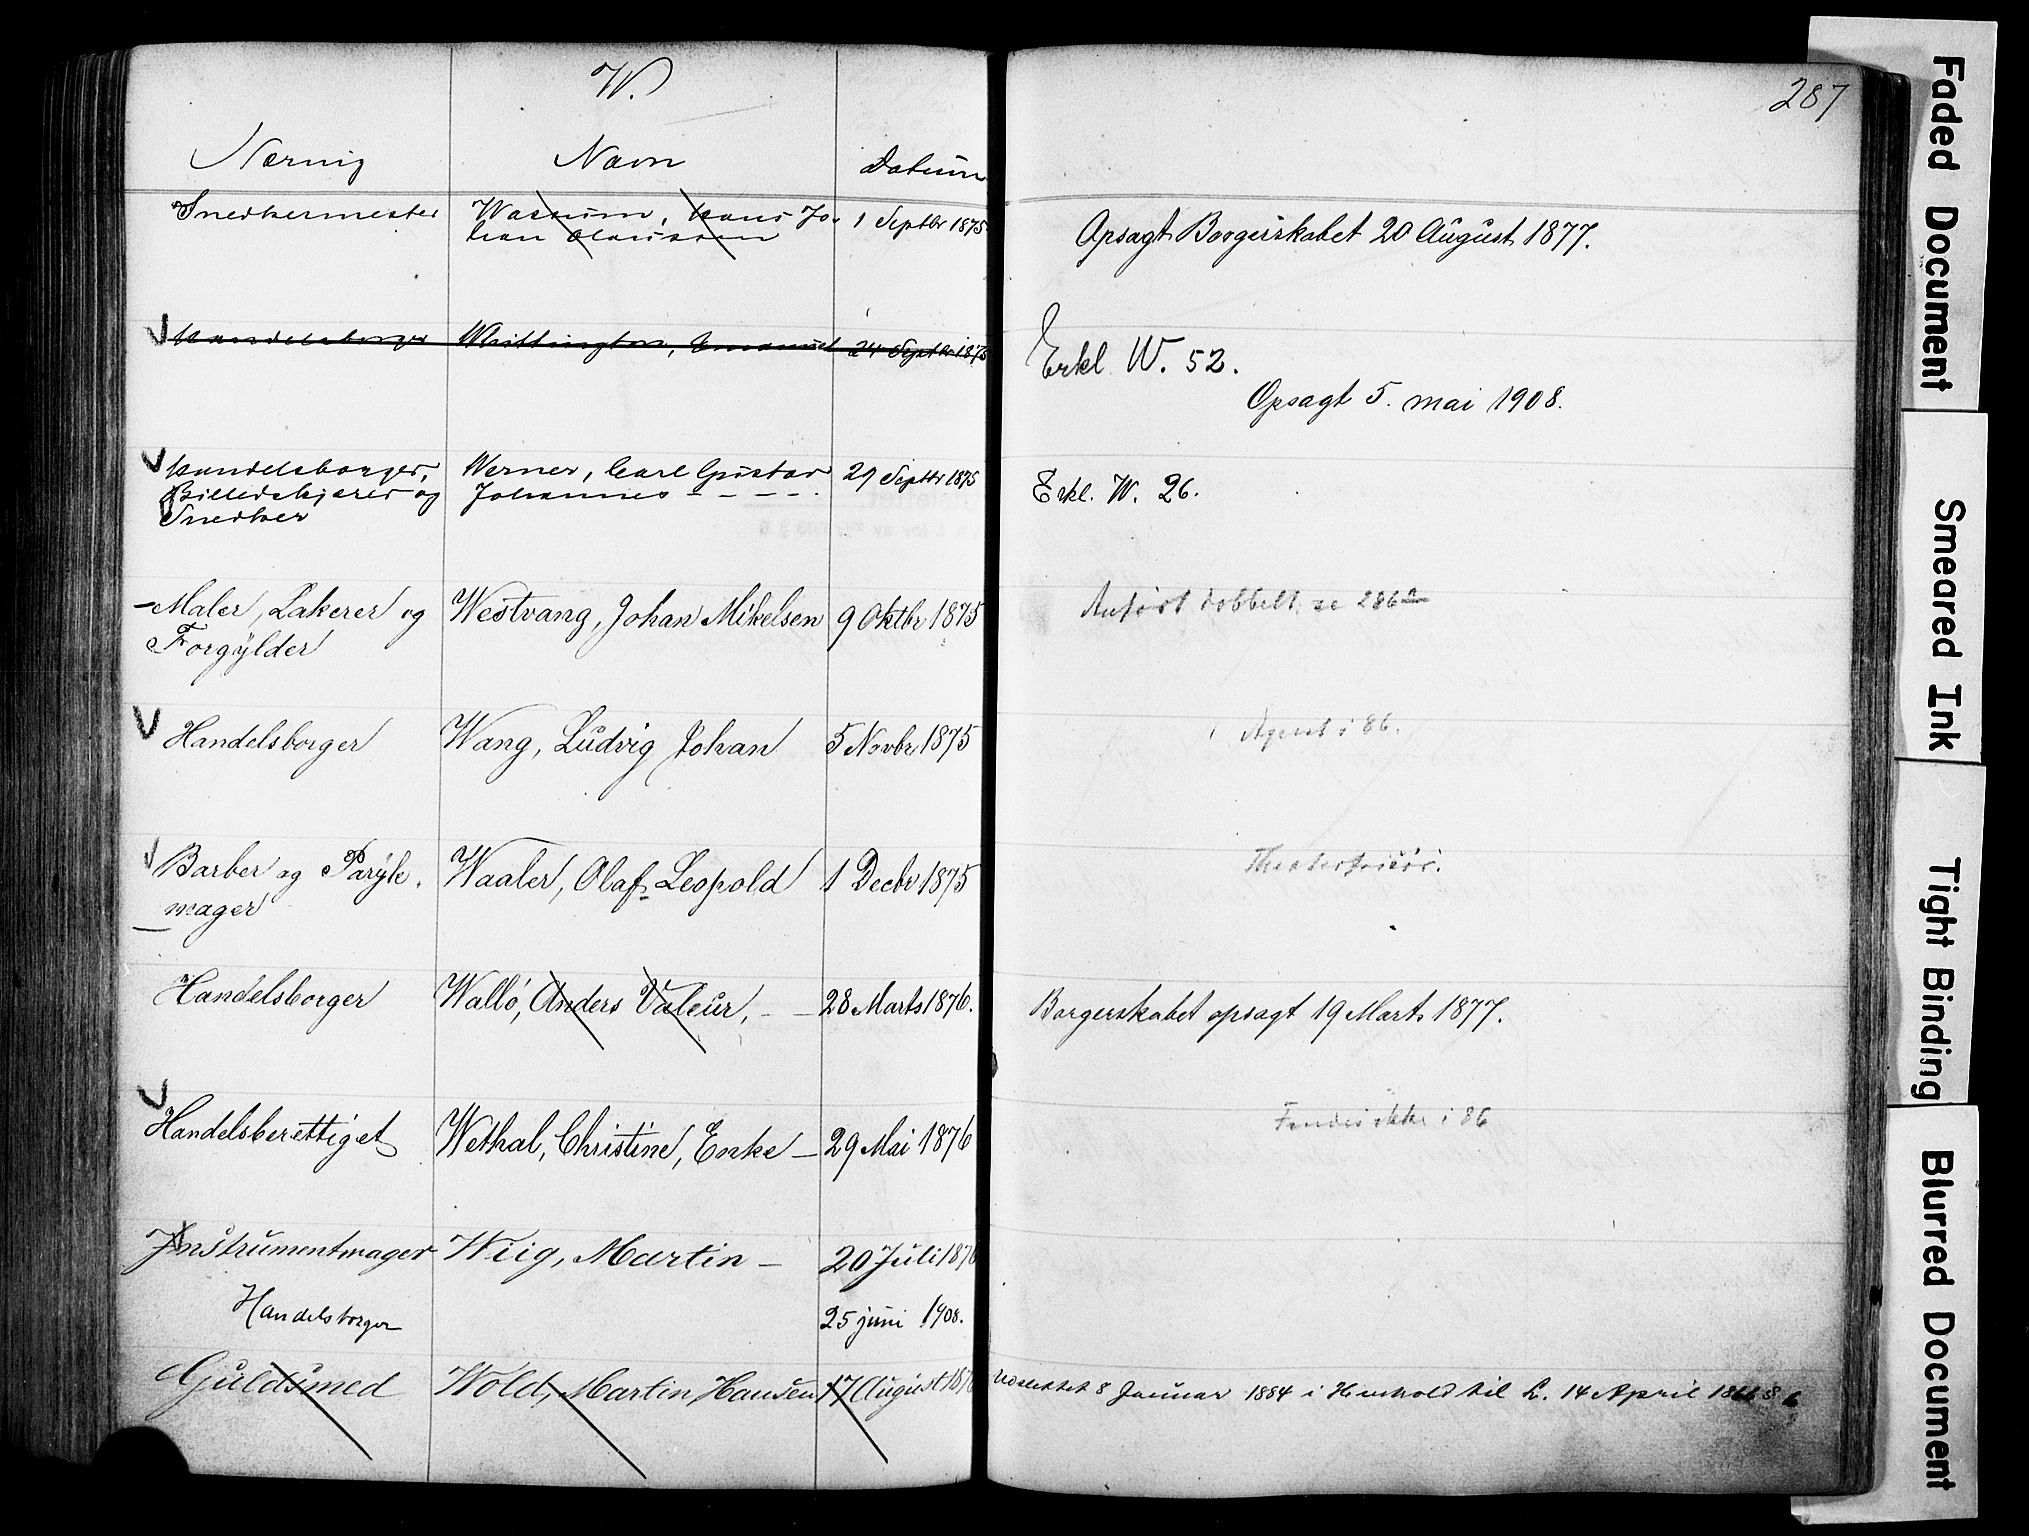 W.
287
Næring Navn Datum
Snedkermester Wassum, Hans Jo- 1 Septbr 1875 Opsagt Borgerskabet 20 August 1877.
han Claussen
Handelsborger Whittington, Emanuel 24 Septbr 1875 Erkl. W. 52.
Opsagt 5. mai 1908.
Handelsborger, Werner, Carl Gustav 29 Septbr 1875 Erkl. W. 26.
Billedskjærer og Johannes - - - -
Snedker
Maler, Lakerer og Westvang, Johan Mikelsen 9 Oktbr 1875 Anført dobbelt, se 286
Forgylder
Handelsborger Wang, Ludvig Johan 5 Novbr 1875 Agent i 86.
Barber og Paryk- Waaler, Olaf Leopold 1 Decbr 1875 Theaterfrisør.
mager
Handelsborger Wallö, Anders Valeur, - - 28 Marts 1876. Borgerskabet opsagt 19 Marts 1877.
Handelsberettiget Wethal, Christine, Enke - 29 Mai 1876 Findes ikke i 86
Instrumentmager Wiig, Martin - 20 Juli 1876
Handelsborger 25 juni 1908.
Guldsmed Wold, Martin Hansen 17 August 1876 Udslettet 8 Januar 1884 i Henhold til L. 14 April 1866 § 6
Faded Document
Smeared Ink
Tight Binding
Blurred Document